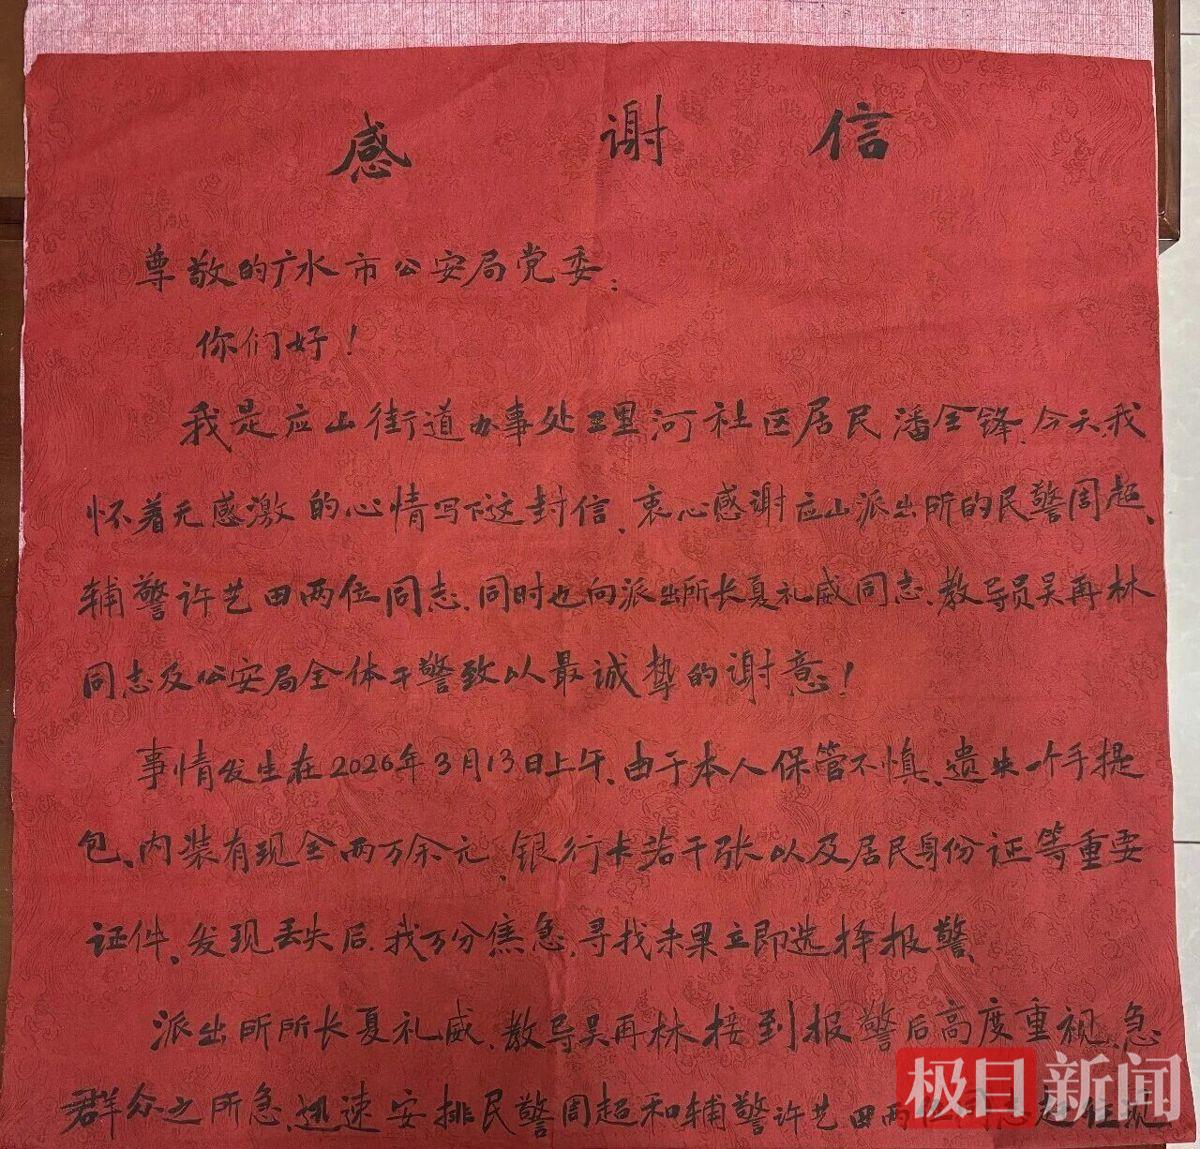 感谢信
尊敬的广水市公安局党委:
你们好!
我是应山街道办事处三里河社区居民潘全锋、今天、我
怀着无感激的心情写下这封信、衷心感谢应山派出所的民警周超、
辅警许艺田两位同志、同时也向派出所长夏礼威同志、教导员吴再林
同志及公安局全体干警致以最诚挚的谢意!
事情发生在2026年3月13日上午、由于本人保管不慎、遗失一个手提
包、内装有现金两万余元、银行卡若干张以及居民身份证等重要
证件、发现丢失后、我万分焦急、寻找未果立即选择报警、
派出所所长夏礼威、教导吴再林接到报警后高度重视、急
群众之所急、迅速安排民警周超和辅警许艺田两
极目新闻